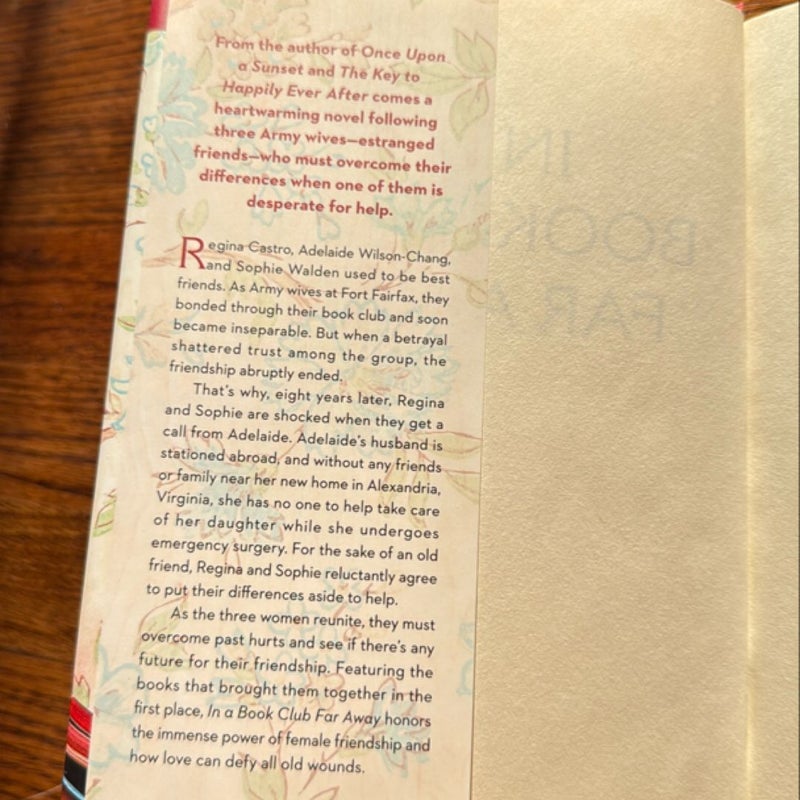 From the author of Once Upon
a Sunset and The Key to
Happily Ever After comes a
heartwarming novel following
three Army wives—estranged
friends—who must overcome their
differences when one of them is
desperate for help.
Regina Castro, Adelaide Wilson-Chang,
and Sophie Walden used to be best
friends. As Army wives at Fort Fairfax, they
bonded through their book club and soon
became inseparable. But when a betrayal
shattered trust among the group, the
friendship abruptly ended.
That's why, eight years later, Regina
and Sophie are shocked when they get a
call from Adelaide. Adelaide's husband is
stationed abroad, and without any friends
or family near her new home in Alexandria,
Virginia, she has no one to help take care
of her daughter while she undergoes
emergency surgery. For the sake of an old
friend, Regina and Sophie reluctantly agree
to put their differences aside to help.
As the three women reunite, they must
overcome past hurts and see if there's any
future for their friendship. Featuring the
books that brought them together in the
first place, In a Book Club Far Away honors
the immense power of female friendship and
how love can defy all old wounds.